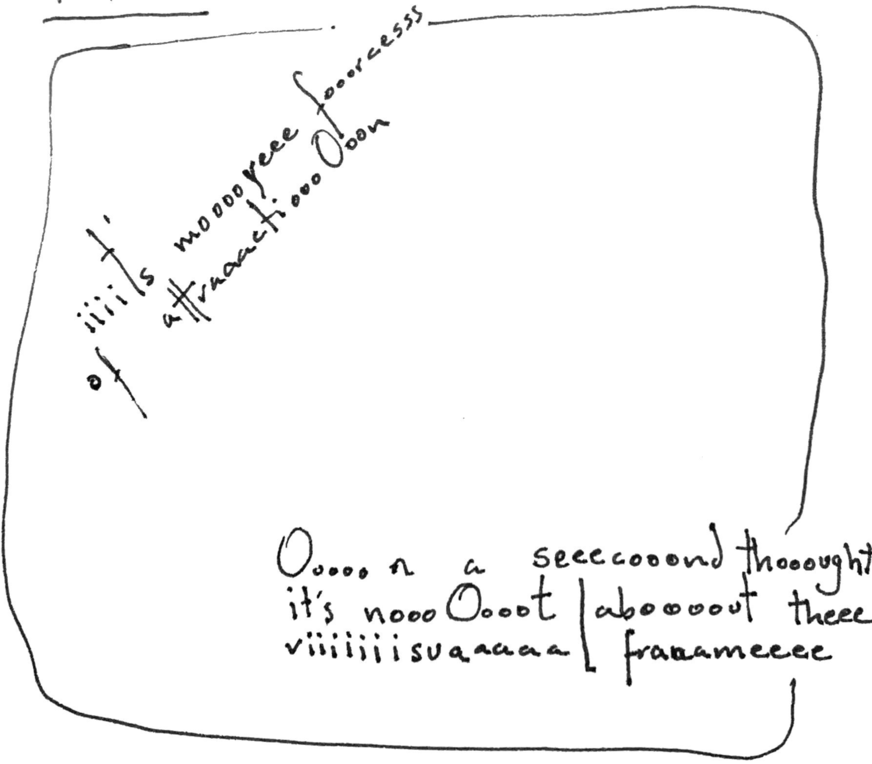 iiiit's mooooreee fooorcesss
of attraaactiooo Ooon
Ooooo n a seeecooond thooought
it's nooo Oooot abooooout theee
viiiiiiisuaaaaal fraaameeee